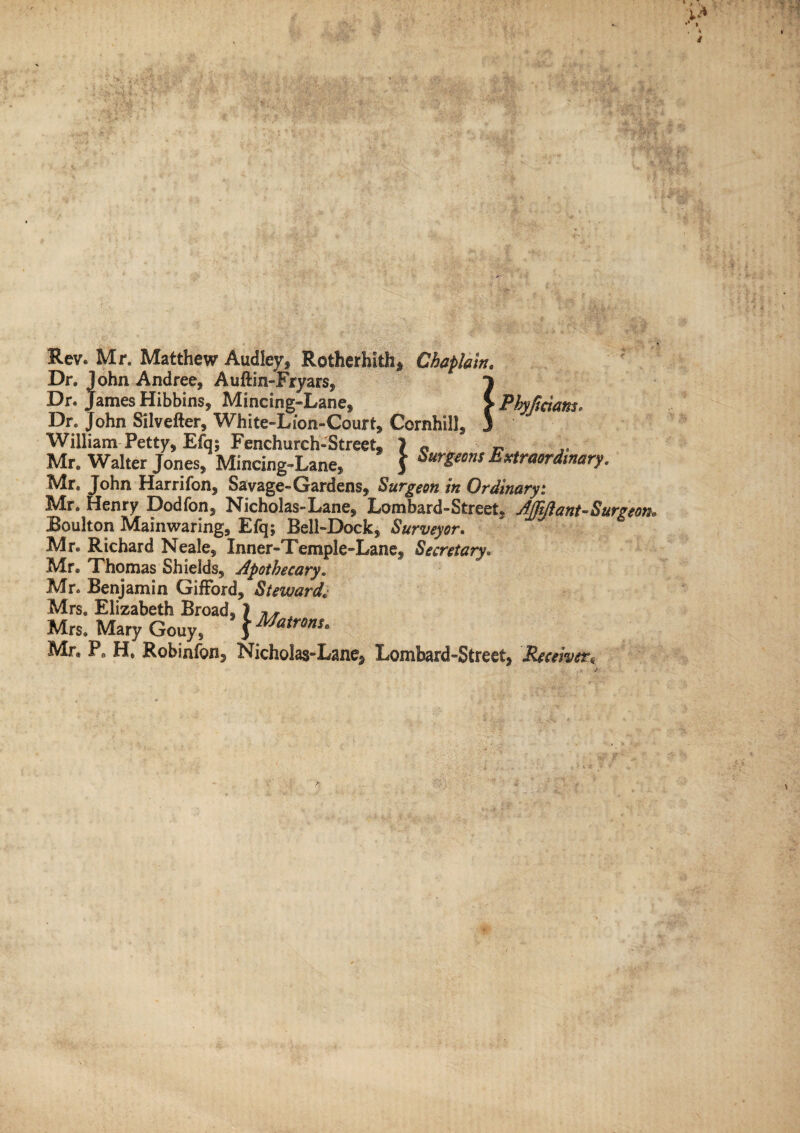 Rev. Mr. Matthew Audley, Rotherhith, Chaplain.
Dr. John Andree, Auſtin-Fryars,
Dr. James Hibbins, Mincing-Lane,
Dr. John Silveſter, White-Lion-Court, Cornhill, } Phyſicians.
William Petty, Eſq; Fenchurch-Street,
Mr. Walter Jones, Mincing-Lane, } Surgeons Extraordinary.
Mr. John Harriſon, Savage-Gardens, Surgeon in Ordinary:
Mr. Henry Dodſon, Nicholas-Lane, Lombard-Street, Aſſiſtant-Surgeon.
Boulton Mainwaring, Eſq; Bell-Dock, Surveyor.
Mr. Richard Neale, Inner-Temple-Lane, Secretary.
Mr. Thomas Shields, Apothecary.
Mr. Benjamin Gifford, Steward.
Mrs. Elizabeth Broad,
Mrs. Mary Gouy, } Matrons.
Mr. P. H. Robinſon, Nicholas-Lane, Lombard-Street, Receiver.